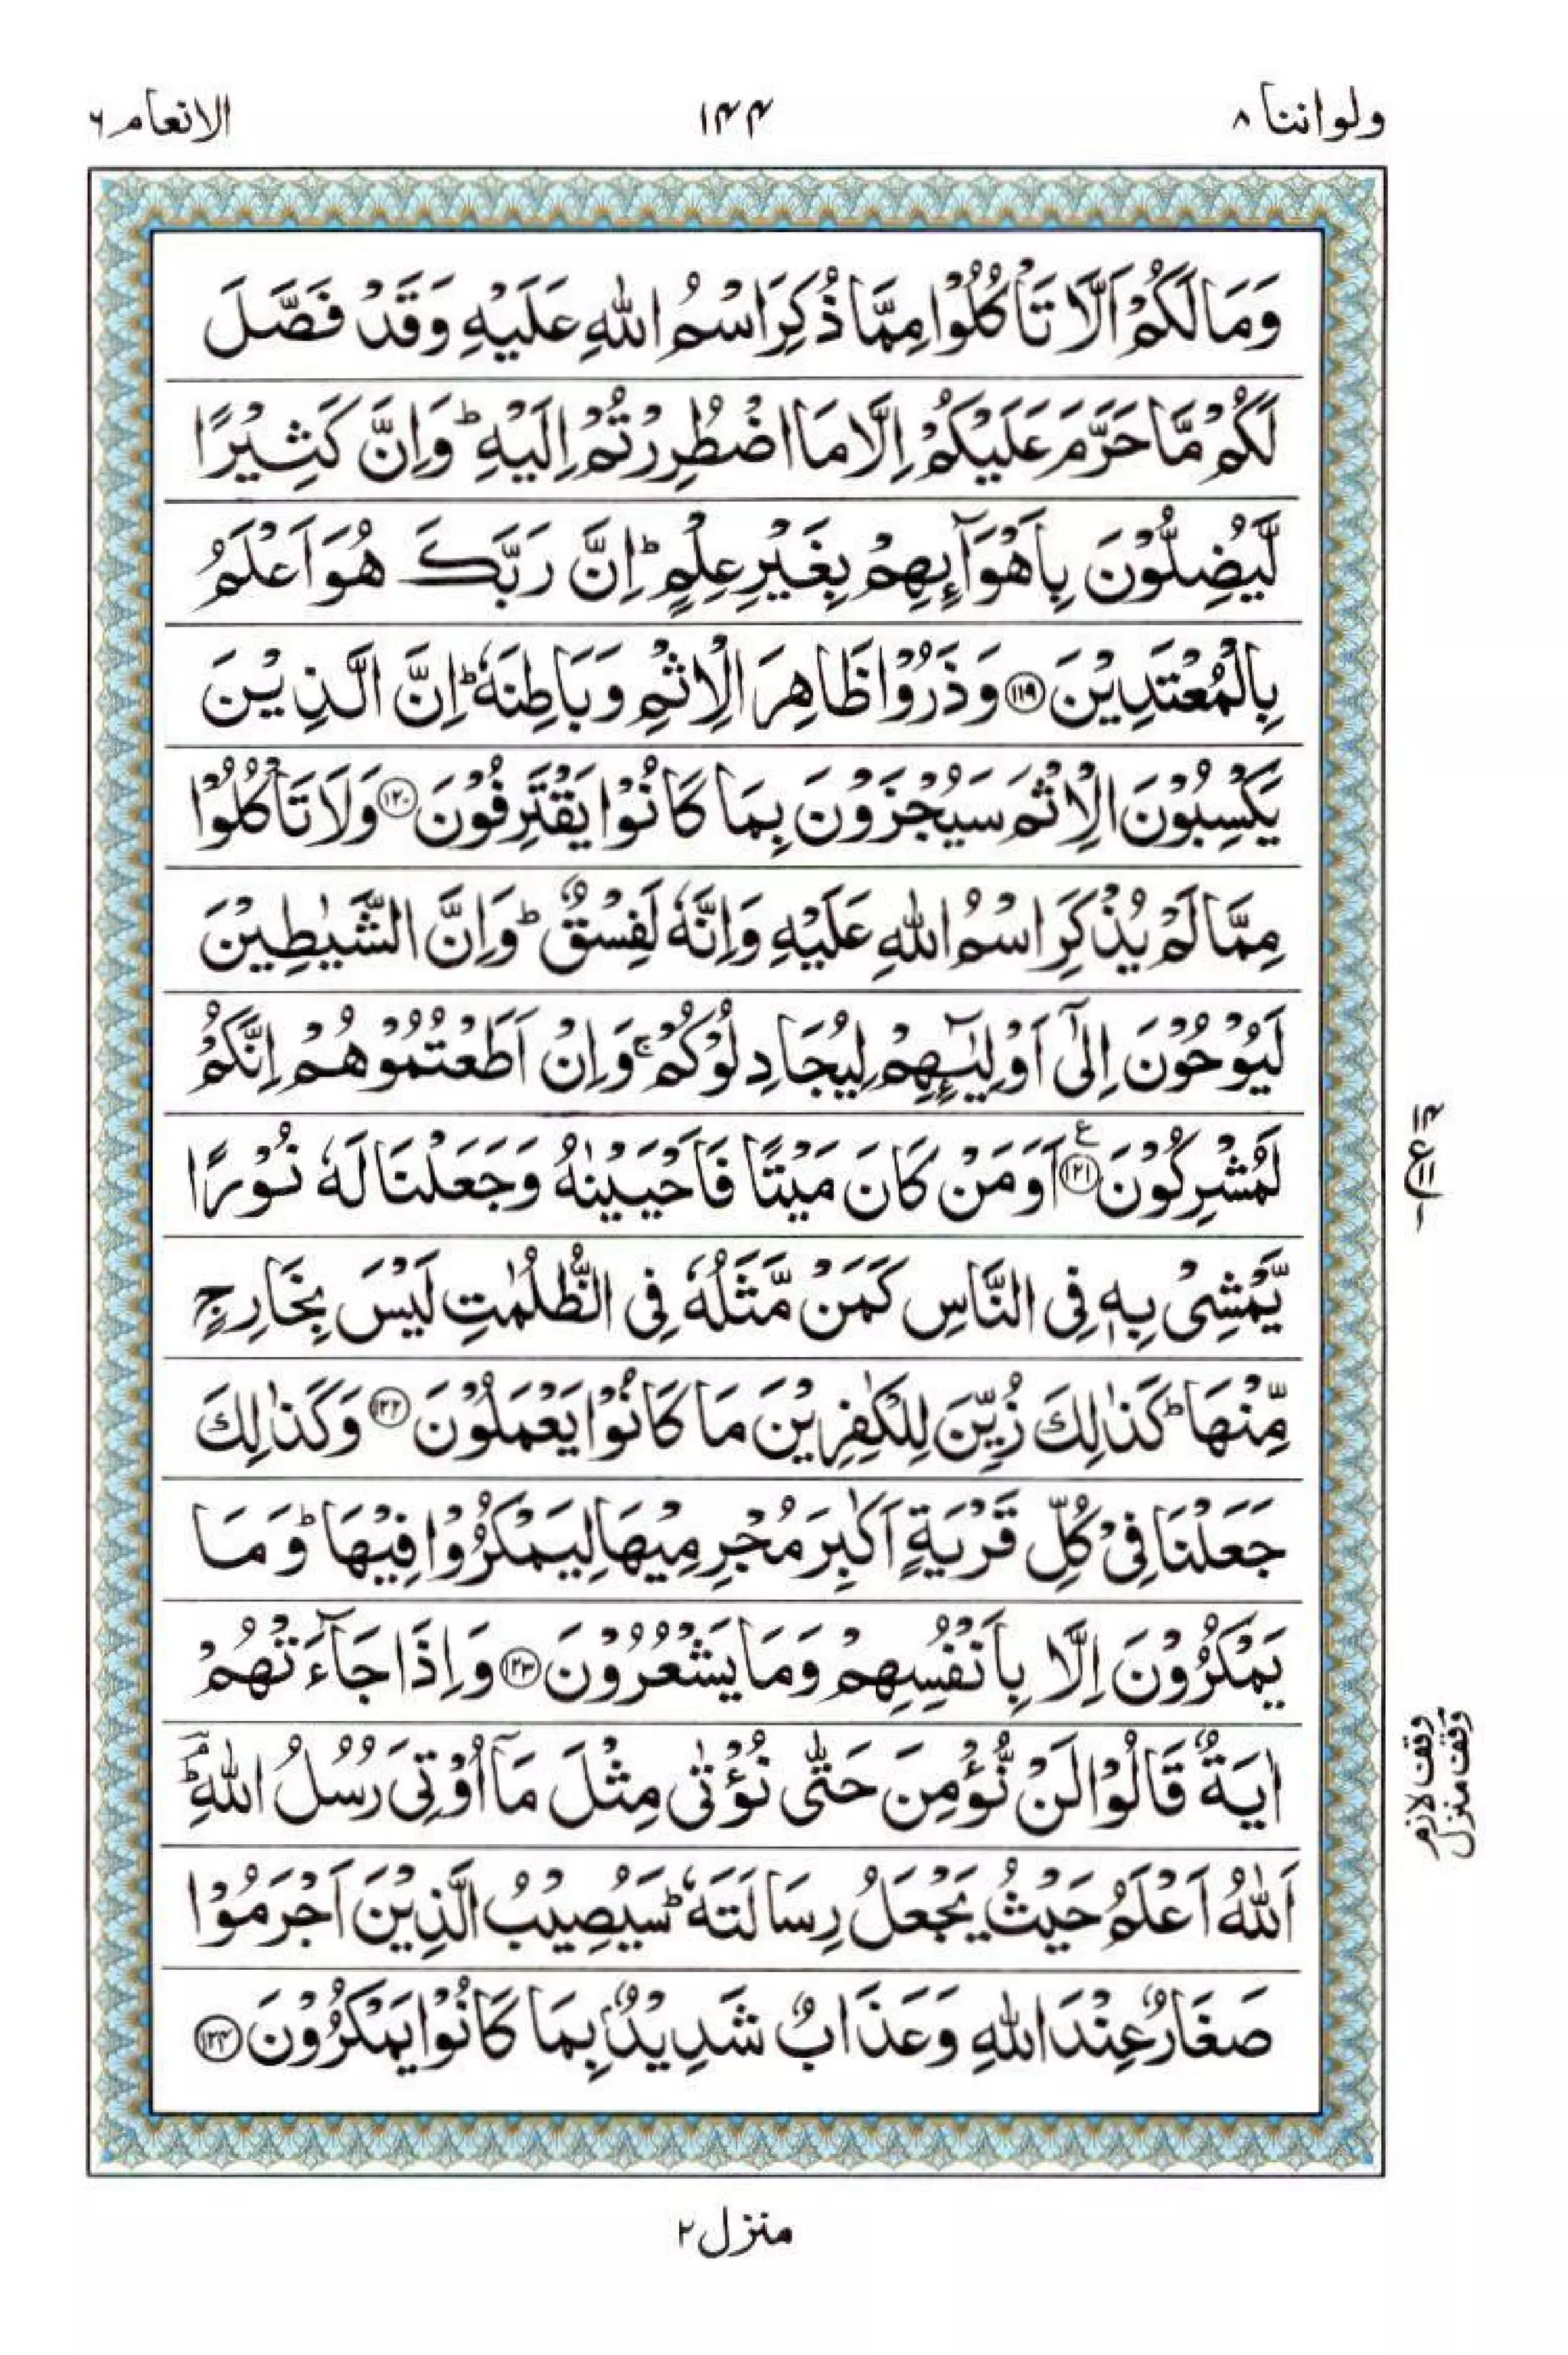 ولواننا ٨
١٤٤
الانعام ٦
وَمَا لَكُمْ اَلَّا تَاْكُلُوْا مِمَّا ذُكِرَ اسْمُ اللّٰهِ عَلَيْهِ وَقَدْ فَصَّلَ
لَكُمْ مَّا حَرَّمَ عَلَيْكُمْ اِلَّا مَا اضْطُرِرْتُمْ اِلَيْهِ ؕ وَاِنَّ كَثِيْرًا
لَّيُضِلُّوْنَ بِاَهْوَآىِٕهِمْ بِغَيْرِ عِلْمٍ ؕ اِنَّ رَبَّكَ هُوَ اَعْلَمُ
بِالْمُعْتَدِيْنَ ۝١١٩ وَذَرُوْا ظَاهِرَ الْاِثْمِ وَبَاطِنَهٗ ؕ اِنَّ الَّذِيْنَ
يَكْسِبُوْنَ الْاِثْمَ سَيُجْزَوْنَ بِمَا كَانُوْا يَقْتَرِفُوْنَ ۝١٢٠ وَلَا تَاْكُلُوْا
مِمَّا لَمْ يُذْكَرِ اسْمُ اللّٰهِ عَلَيْهِ وَاِنَّهٗ لَفِسْقٌ ؕ وَاِنَّ الشَّيٰطِيْنَ
لَيُوْحُوْنَ اِلٰٓى اَوْلِيٰٓـِٕهِمْ لِيُجَادِلُوْكُمْ ۚ وَاِنْ اَطَعْتُمُوْهُمْ اِنَّكُمْ
لَمُشْرِكُوْنَ ۝١٢١ ع اَوَمَنْ كَانَ مَيْتًا فَاَحْيَيْنٰهُ وَجَعَلْنَا لَهٗ نُوْرًا
يَّمْشِيْ بِهٖ فِي النَّاسِ كَمَنْ مَّثَلُهٗ فِي الظُّلُمٰتِ لَيْسَ بِخَارِجٍ
مِّنْهَا ؕ كَذٰلِكَ زُيِّنَ لِلْكٰفِرِيْنَ مَا كَانُوْا يَعْمَلُوْنَ ۝١٢٢ وَكَذٰلِكَ
جَعَلْنَا فِيْ كُلِّ قَرْيَةٍ اَكٰبِرَ مُجْرِمِيْهَا لِيَمْكُرُوْا فِيْهَا ؕ وَمَا
يَمْكُرُوْنَ اِلَّا بِاَنْفُسِهِمْ وَمَا يَشْعُرُوْنَ ۝١٢٣ وَاِذَا جَآءَتْهُمْ
اٰيَةٌ قَالُوْا لَنْ نُّؤْمِنَ حَتّٰى نُؤْتٰى مِثْلَ مَآ اُوْتِيَ رُسُلُ اللّٰهِ ؕۘ
اَللّٰهُ اَعْلَمُ حَيْثُ يَجْعَلُ رِسَالَتَهٗ ؕ سَيُصِيْبُ الَّذِيْنَ اَجْرَمُوْا
صَغَارٌ عِنْدَ اللّٰهِ وَعَذَابٌ شَدِيْدٌۢ بِمَا كَانُوْا يَمْكُرُوْنَ ۝١٢٤
ع ١١
وقف لازم
وقف منزل
منزل ٢